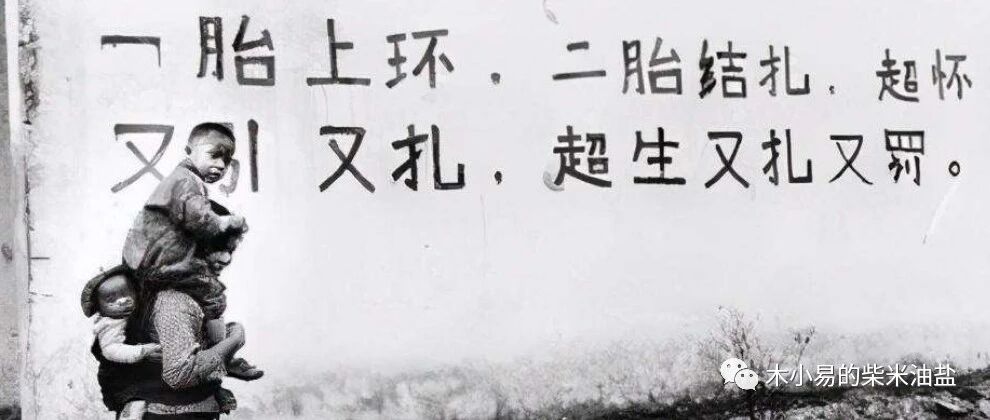 一胎上环．二胎结扎．超怀
又引又扎．超生又扎又罚。
木小易的柴米油盐